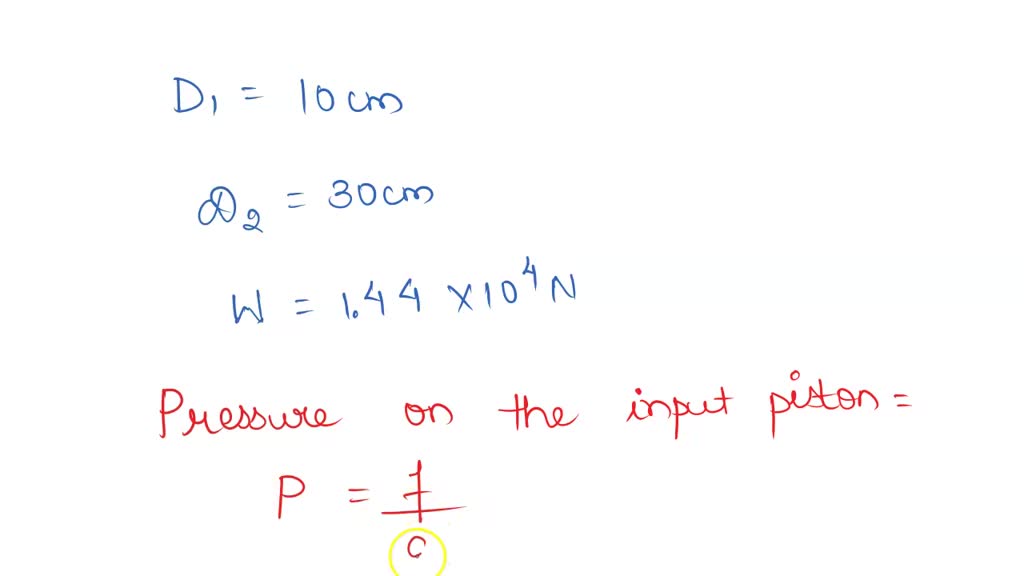 D₁ = 10cm
D₂ = 30cm
W = 1.44 × 10⁴ N
Pressure on the input piston =
P = f